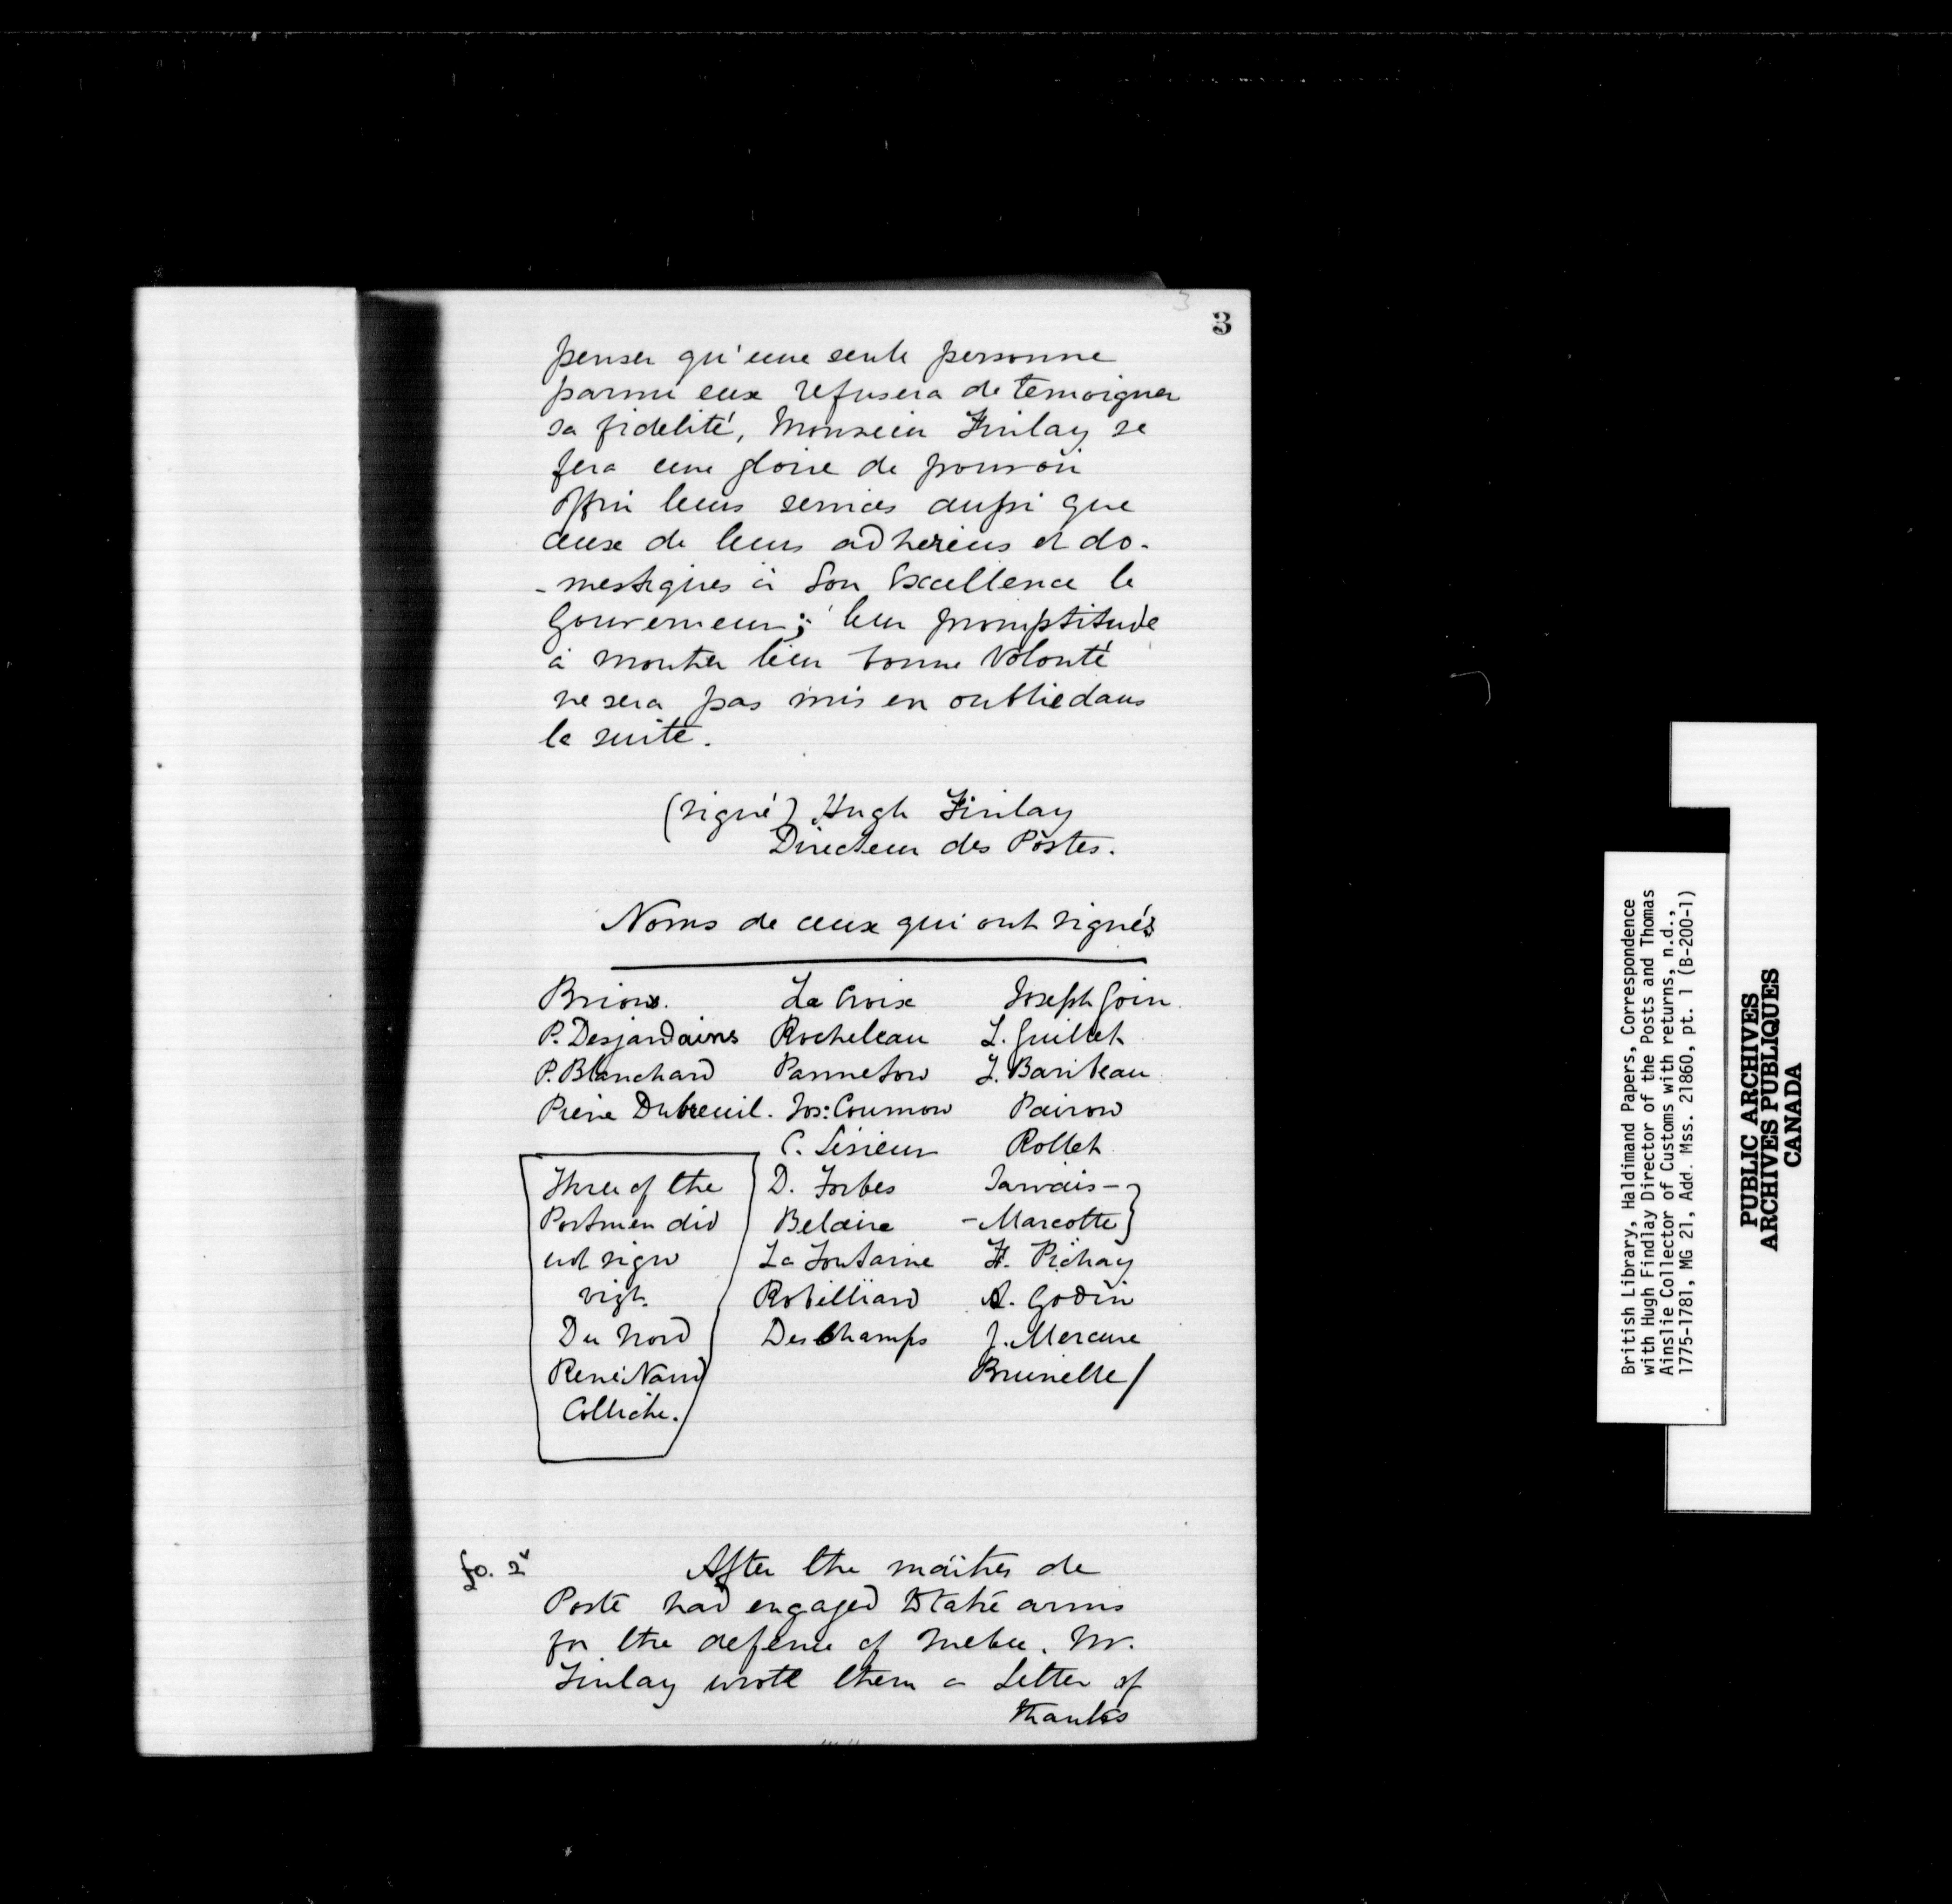 3
penser qu'une seule personne
parmi eux refusera de temoigner
sa fidelité, Monsieur Finlay se
fera une gloire de pouvoir
offrir leurs services aussi que
ceux de leurs adherens et do-
-mestiques à Son Excellence le
Gouverneur; leur promptitude
à montrer leur bonne volonté
ne sera pas mis en oublie dans
la suite.
(signé) Hugh Finlay
Directeur des Postes.
Noms de ceux qui ont signés
Brion. La Croix Joseph Goin.
P. Desjardains Rocheleau L. Guillet
P. Blanchard Panneton J. Baribeau
Pierre Dubreuil. Jos: Cournow Pairon
C. Lesieur Rollet
Three of the D. Forbes Jarvais-
Postmen did Belaire -Marcotte}
not sign La Fontaine F. Pichay
vizt. Robilliard A. Godin
Du Nord Des Champs J. Mercure
René Naud Brunelle/
Colliche.
fo. 2v
After the maitres de
Poste had engaged to take arms
for the defence of Quebec. Mr.
Finlay wrote them a Letter of
thanks
British Library, Haldimand Papers, Correspondence
with Hugh Findlay Director of the Posts and Thomas
Ainslie Collector of Customs with returns, n.d.,
1775-1781, MG 21, Add. Mss. 21860, pt. 1 (B-200-1)
PUBLIC ARCHIVES
ARCHIVES PUBLIQUES
CANADA